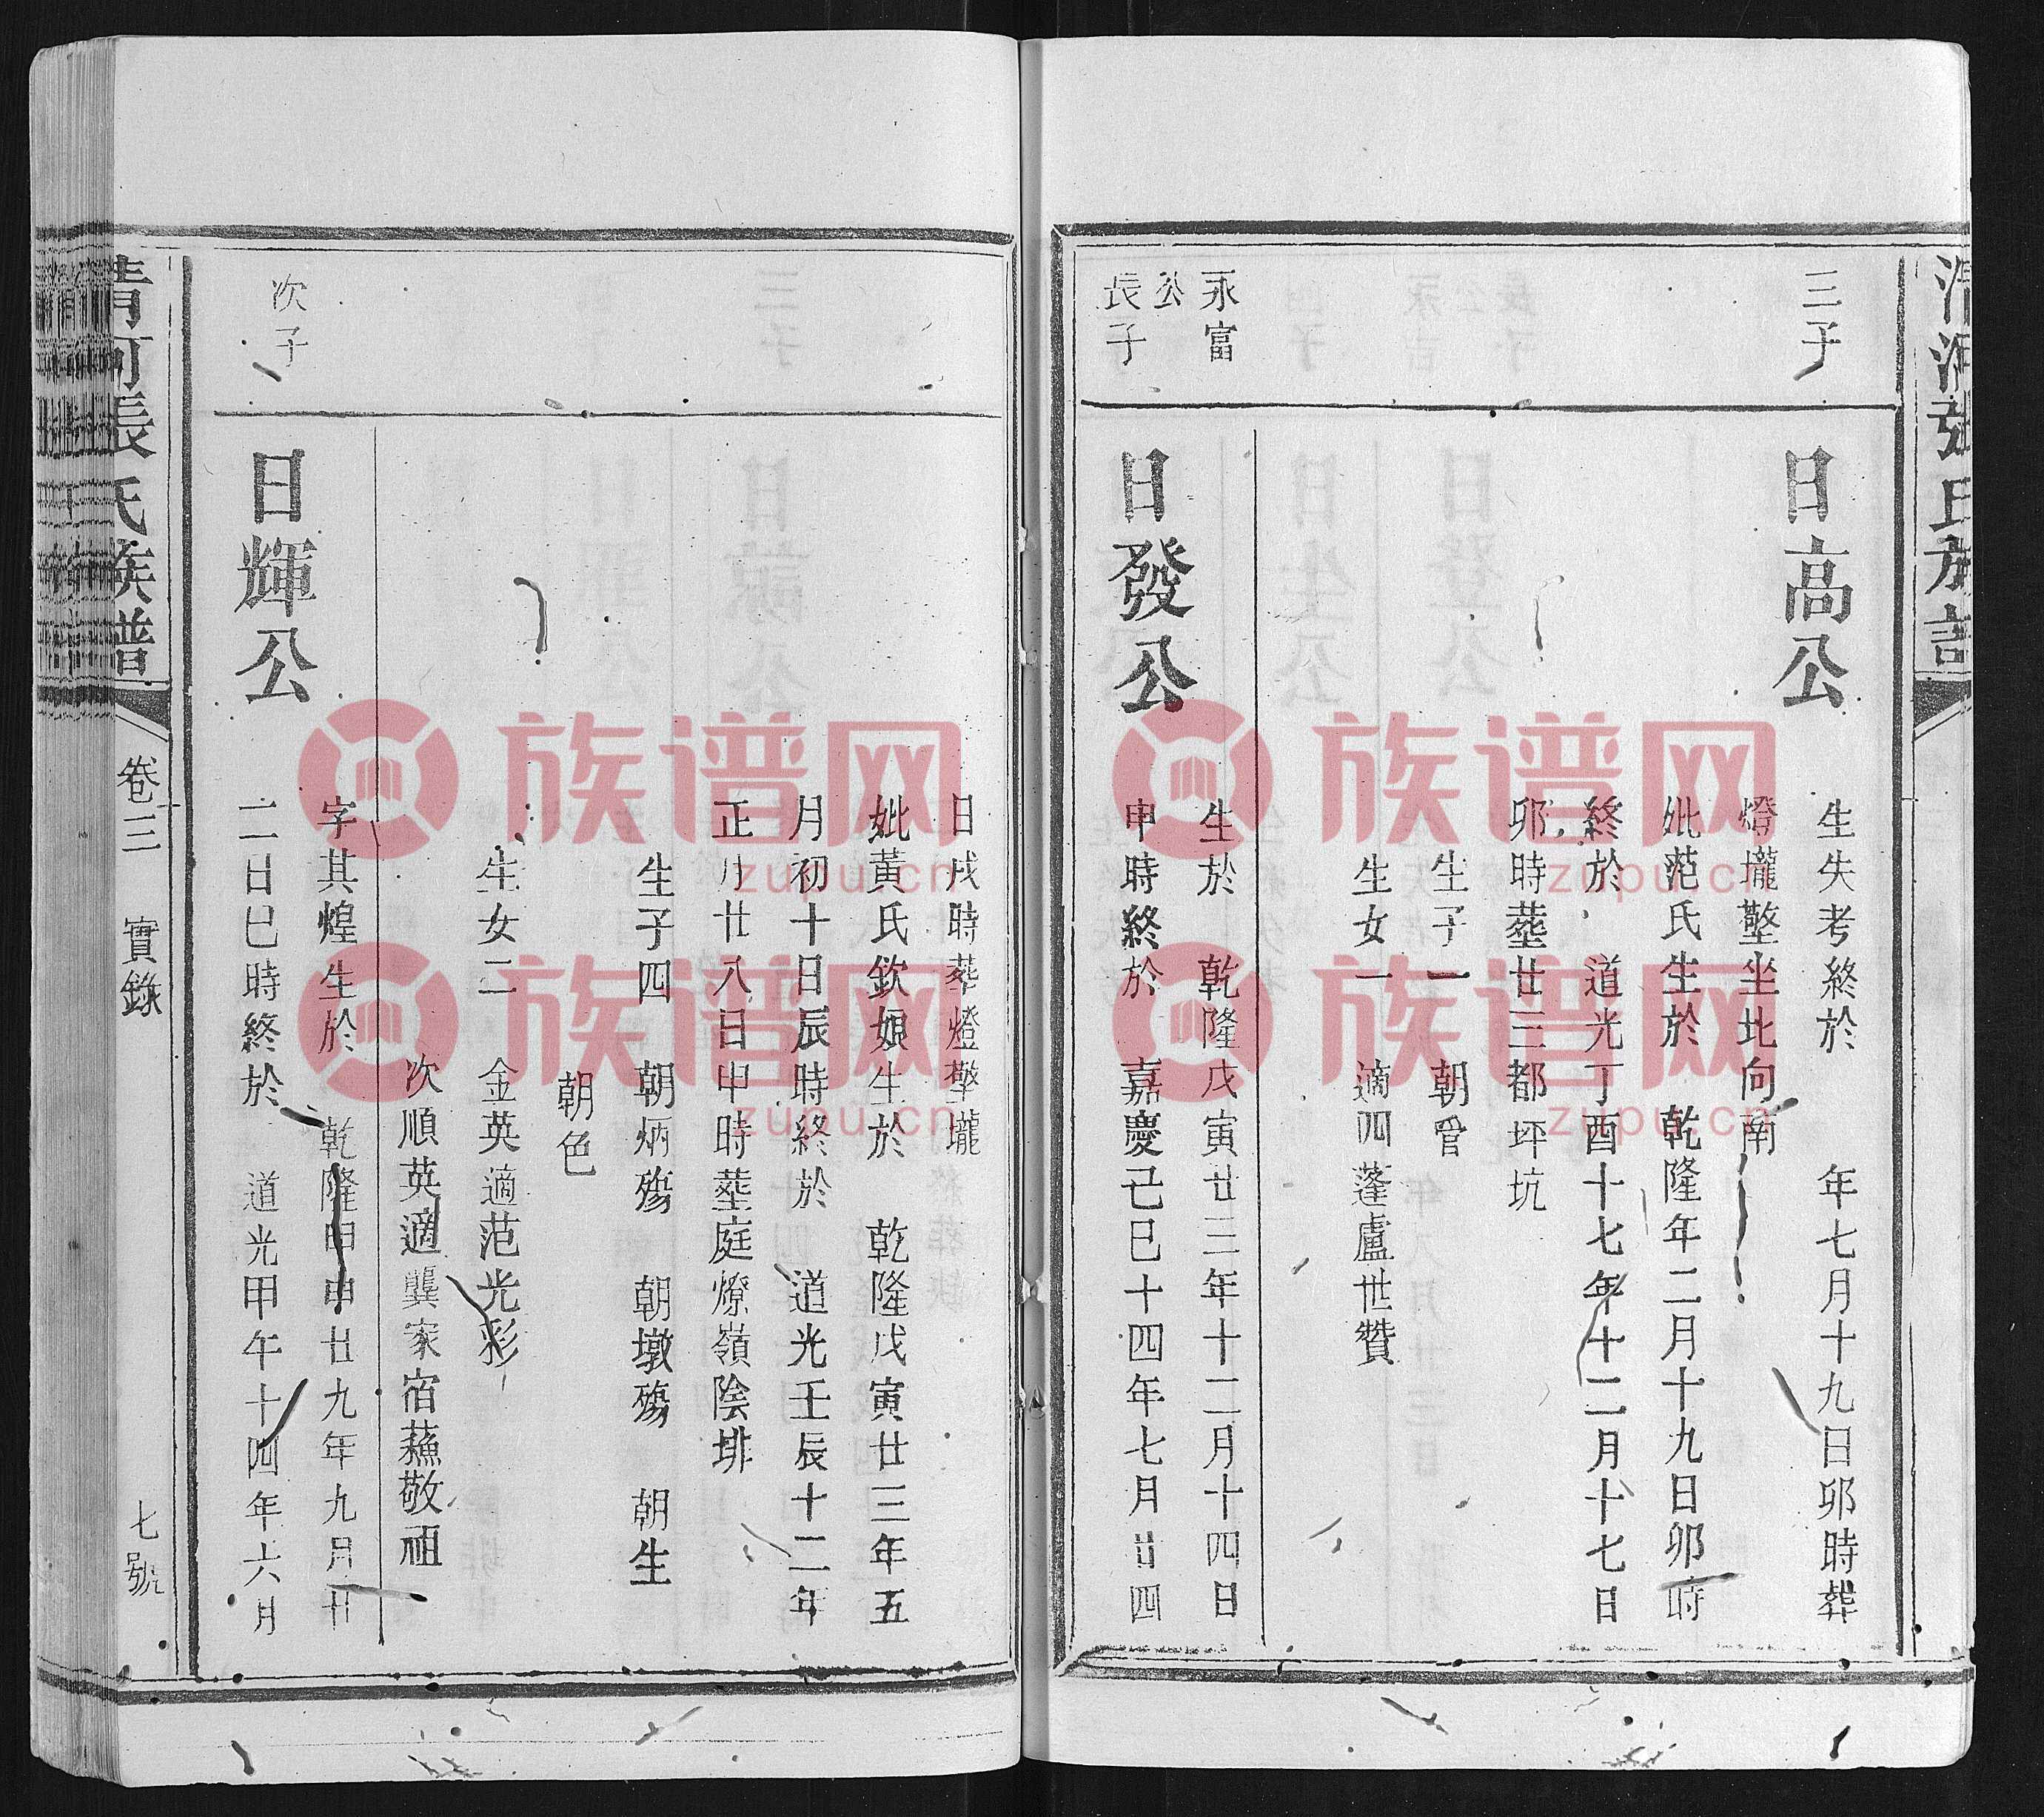 三子
日高公
生失考終於 年七月十九日卯時葬
燈壠墼坐北向南
妣范氏生於 乾隆年二月十九日卯時
終於 道光丁酉十七年十二月十七日
卯時塟廿三都坪坑
生子一 朝
生女一 適四蓬盧世贊
永富
公
長子
日發公
生於 乾隆戊寅廿三年十二月十四日
申時終於 嘉慶己巳十四年七月廿四
日戌時葬燈墼壠
妣黃氏欽娘生於 乾隆戊寅廿三年五
月初十日辰時終於 道光壬辰十二年
正月廿八日申時塟庭燎嶺陰排
生子四 朝炳殤 朝墩殤 朝生
朝色
生女二 金英適范光彩
次順英適龔家宿蘓敬祖
次子
日輝公
字其煌生於 乾隆甲申廿九年九月廿
二日巳時終於 道光甲午十四年六月
清河張氏族譜
卷三 實錄
七號
清河張氏族
族谱网
zupu.cn
族谱网
zupu.cn
族谱网
zupu.cn
族谱网
zupu.cn